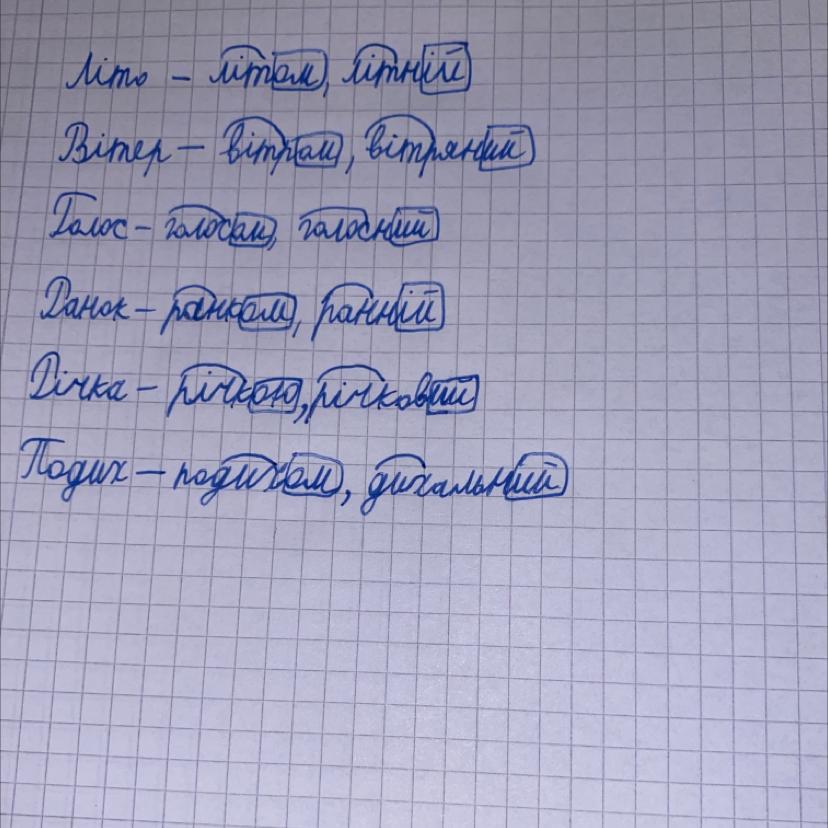 Літо – літом, літній
Вітер – вітром, вітряний
Голос – голосом, голосний
Ранок – ранком, ранній
Річка – річкою, річковий
Подих – подихом, дихальний